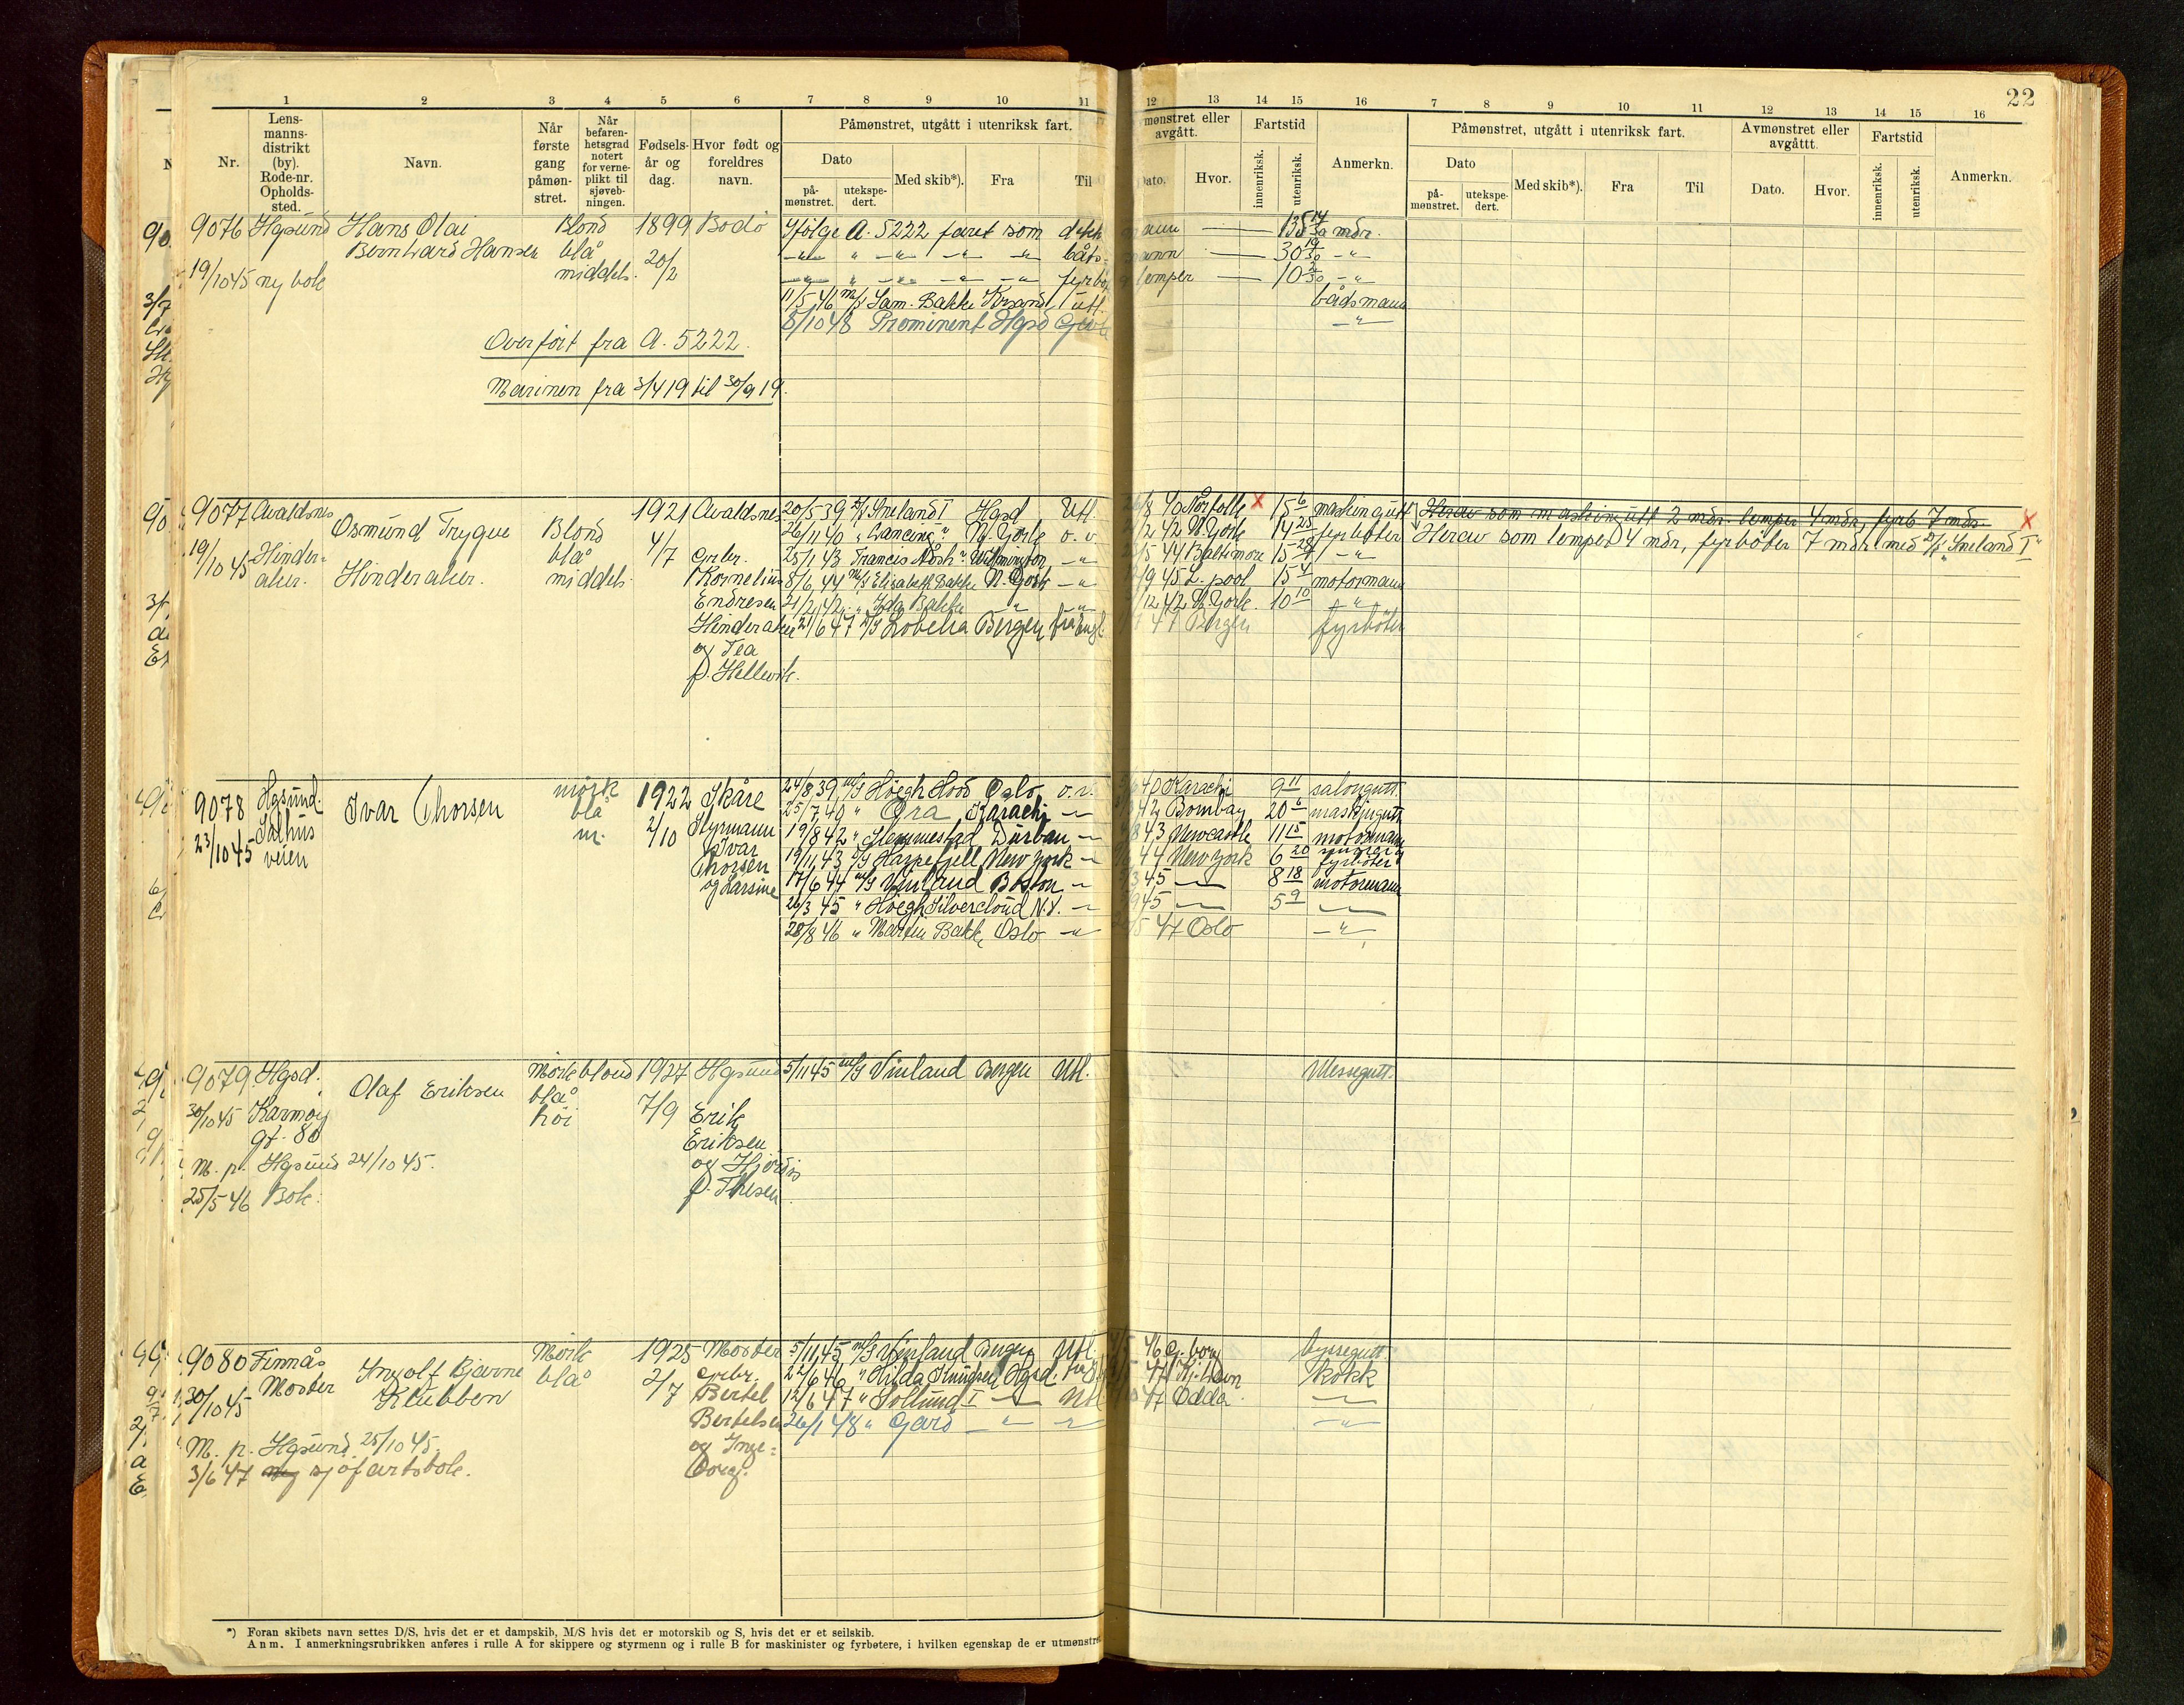 22
1 2 3 4 5 6 7 8 9 10 11 12 13 14 15 16 7 8 9 10 11 12 13 14 15 16
Nr.
Lens-
manns-
distrikt
(by).
Rode-nr.
Opholds-
sted.
Navn.
Når
første
gang
påmøn-
stret.
Når
befaren-
hetsgrad
notert
for verne-
plikt til
sjøveb-
ningen.
Fødsels-
år og
dag.
Hvor født og
foreldres
navn.
Påmønstret, utgått i utenriksk fart.
Dato
på-
mønstret.
utekspe-
dert.
Med skib*).
Fra
Til
mønstret eller
avgått.
Dato.
Hvor.
Fartstid
innenriksk.
utenriksk.
Anmerkn.
Påmønstret, utgått i utenriksk fart.
Dato
på-
mønstret.
utekspe-
dert.
Med skib*).
Fra
Til
Avmønstret eller
avgåttt.
Dato.
Hvor.
Fartstid
innenriksk.
utenriksk.
Anmerkn.
9076 Hgsund Hans Olai Blond 1899 Bodø Ifølge A. 5222 faret som dekk mann — 135 14/30 mdr.
Bernhard Hansen blå 20/2 -"- " -"- -"- -"- båts- mann — 30 19/30 -"-
19/10 45 ny bok middels. -"- " -"- -"- -"- fyrbø lemper — 10 2/30 -"-
11/5 46 m/s Sam. Bakke Krsand utl. bådsmann
8/10 48 Prominent Hgsd -"-
Overført fra A. 5222.
Marinen fra 3/4 19 til 30/9 19.
9077 Avaldsnes 1921 Avaldsnes 20/5 39 d/s Sneland I Hgsd Utl. 26/8 40 Norfolk x 15 6 maskingutt Herav som maskingutt 2 mdr. lemper 4 mdr, fyrb. 7 mdr. x
Osmund Trygve Blond 4/7 26/11 40 " Lancing " N. York o. v. 2/2 42 N. York 14 25 fyrbøter Herav som lemper 4 mdr, fyrbøter 7 mdr. med d/s "Sneland I"
19/10 45 Hinder- blå Grbr. 25/1 43 Francis Nash " Wilmington -"- 5 44 Baltimore 15 28 -"-
aker. Hinderaker. middels. Kornelius 8/6 44 m/s Elisabeth Bakke N. York -"- 9 45 L. pool 15 4 motormann
Endresen 21/2 42 " Ida Bakke " -"- 12 42 N. York. 10 10 -"-
Hinderaker 21/6 47 d/s Lobelia Bergen fra Engl. 47 Bergen fyrbøter
og Tea
f. Hellevik.
9078 Hgsund. Ivar Thorsen mørk 1922 Skåre 24/8 39 m/s Høegh Hood Oslo o.v. 40 Karachi 9 11 salongutt.
Salhus blå 2/10 Styrmann 25/7 40 " Ora Karachi — 42 Bombay 20 6 maskingutt
23/10 45 veien m. Ivar 19/8 42 " Hemmestad Durban — 8 43 Newcastle 11 15 motormann
Thorsen 19/11 43 d/s Harpefjell New York — 44 New York 6 20 fyrbøter
og Larsine 17/6 44 m/s Vinland Boston — 3 45 — 8 18 motormann
26/3 45 " Høegh Silvercloud N.Y. — 9 45 — 5 9 —
28/8 46 " Martin Bakke Oslo -"- 5 47 Oslo -"-
9079 Hgsd. Olaf Eriksen Mørkeblond 1927 Hgsund 5/11 45 m/s Vinland Bergen Utl. Messegutt.
30/10 45 Karmøy blå 7/9 Erik
gt. 80 høi Eriksen
M. p. Hgsund 24/10 45. og Hjørdis
25/5 46 Bok. f. Thisen
9080 Finnås Ingolf Bjarne Mørk 1925 Moster 5/11 45 m/s Vinland Bergen Utl. 4/5 46 G. borg byssegutt
Moster Klubben blå 2/7 Grbr. 22/6 46 " Hilda Knudsen Hgsd. 47 Kj. havn kokk
30/10 45 Bertel 12/6 47 " Sollund I — Utl 47 Odda —
Bertelsen 26/1 48 " Gard — " — -"-
M. p. Hgsund 25/10 45. og Inge-
3/6 47 ny sjøfartsbok. borg.
*) Foran skibets navn settes D/S, hvis det er et dampskib, M/S hvis det er motorskib og S, hvis det er et seilskib.
Anm. I anmerkningsrubrikken anføres i rulle A for skippere og styrmenn og i rulle B for maskinister og fyrbøtere, i hvilken egenskap de er utmønstret